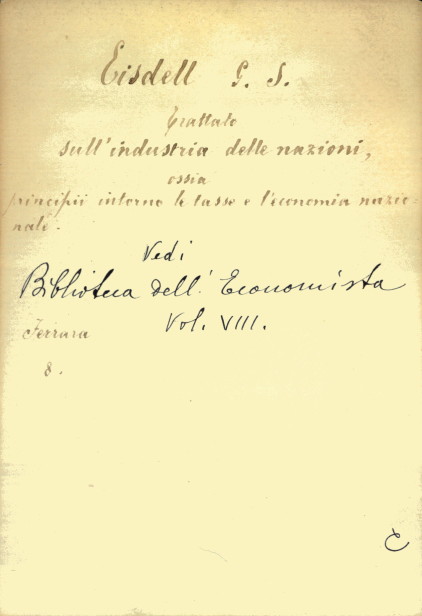 Eisdell G. S.
Trattato
sull'industria delle nazioni,
ossia
principii intorno le tasse e l'economia nazio-
nale.
Vedi
Biblioteca dell'Economista
Vol. VIII.
Ferrara
8.
C